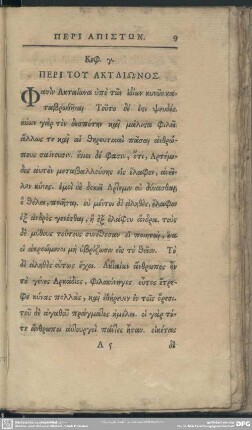 ΠΕΡΙ ΑΠΙΣΤΩΝ. 9
Κεφ. γ.
ΠΕΡΙ ΤΟΥ ΑΚΤΑΙΩΝΟΣ.
Φασὶν Ἀκταίωνα ὑπὸ τῶν ἰδίων κυνῶν κα-
ταβρωθῆναι. Τοῦτο δέ ἐςι ψευδές.
κύων γὰρ τὸν δεσπότην καὶ μάλιςα φιλεῖ·
ἄλλως τε καὶ αἱ θηρευτικαὶ πᾶσαι ἀνθρώ-
πους σαίνουσιν. ἔνιοι δέ φασιν, ὅτι, Ἄρτεμις
δὲ αὐτὸν μεταβαλλούσης εἰς ἔλαφον, ἀνεῖλον
κύνες. ἐμοὶ δὲ δοκεῖ Ἄρτεμιν οὐ δύνασθαι,
ὃ θέλει, ποιῆσαι. οὐ μέντοι δὲ ἀληθὲς, ἔλαφον
ἐξ ἀνδρὸς γενέσθαι, ἢ ἐξ ἐλάφου ἄνδρα. τοὺς
δὲ μύθους τούτους συνέθεσαν οἱ ποιηταὶ, ἵνα
οἱ ἀκροώμενοι μὴ ὑβρίζωσιν εἰς τὸ θεῖον. Τὸ
δὲ ἀληθὲς οὕτως ἔχει. Ἀκταίων ἄνθρωπος ἦν
τὸ γένος Ἀρκάδιος, φιλοκύνηγος. οὗτος ἔτρε-
φε κύνας πολλὰς, καὶ ἐθήρευεν ἐν τοῖς ὄρεσι.
τοῦ δὲ ἀγαθοῦ πράγματος ἠμέλει. οἱ γὰρ τό-
τε ἄνθρωποι αὐτουργοὶ πάντες ἦσαν. οἰκέτας
A 5 δὲ